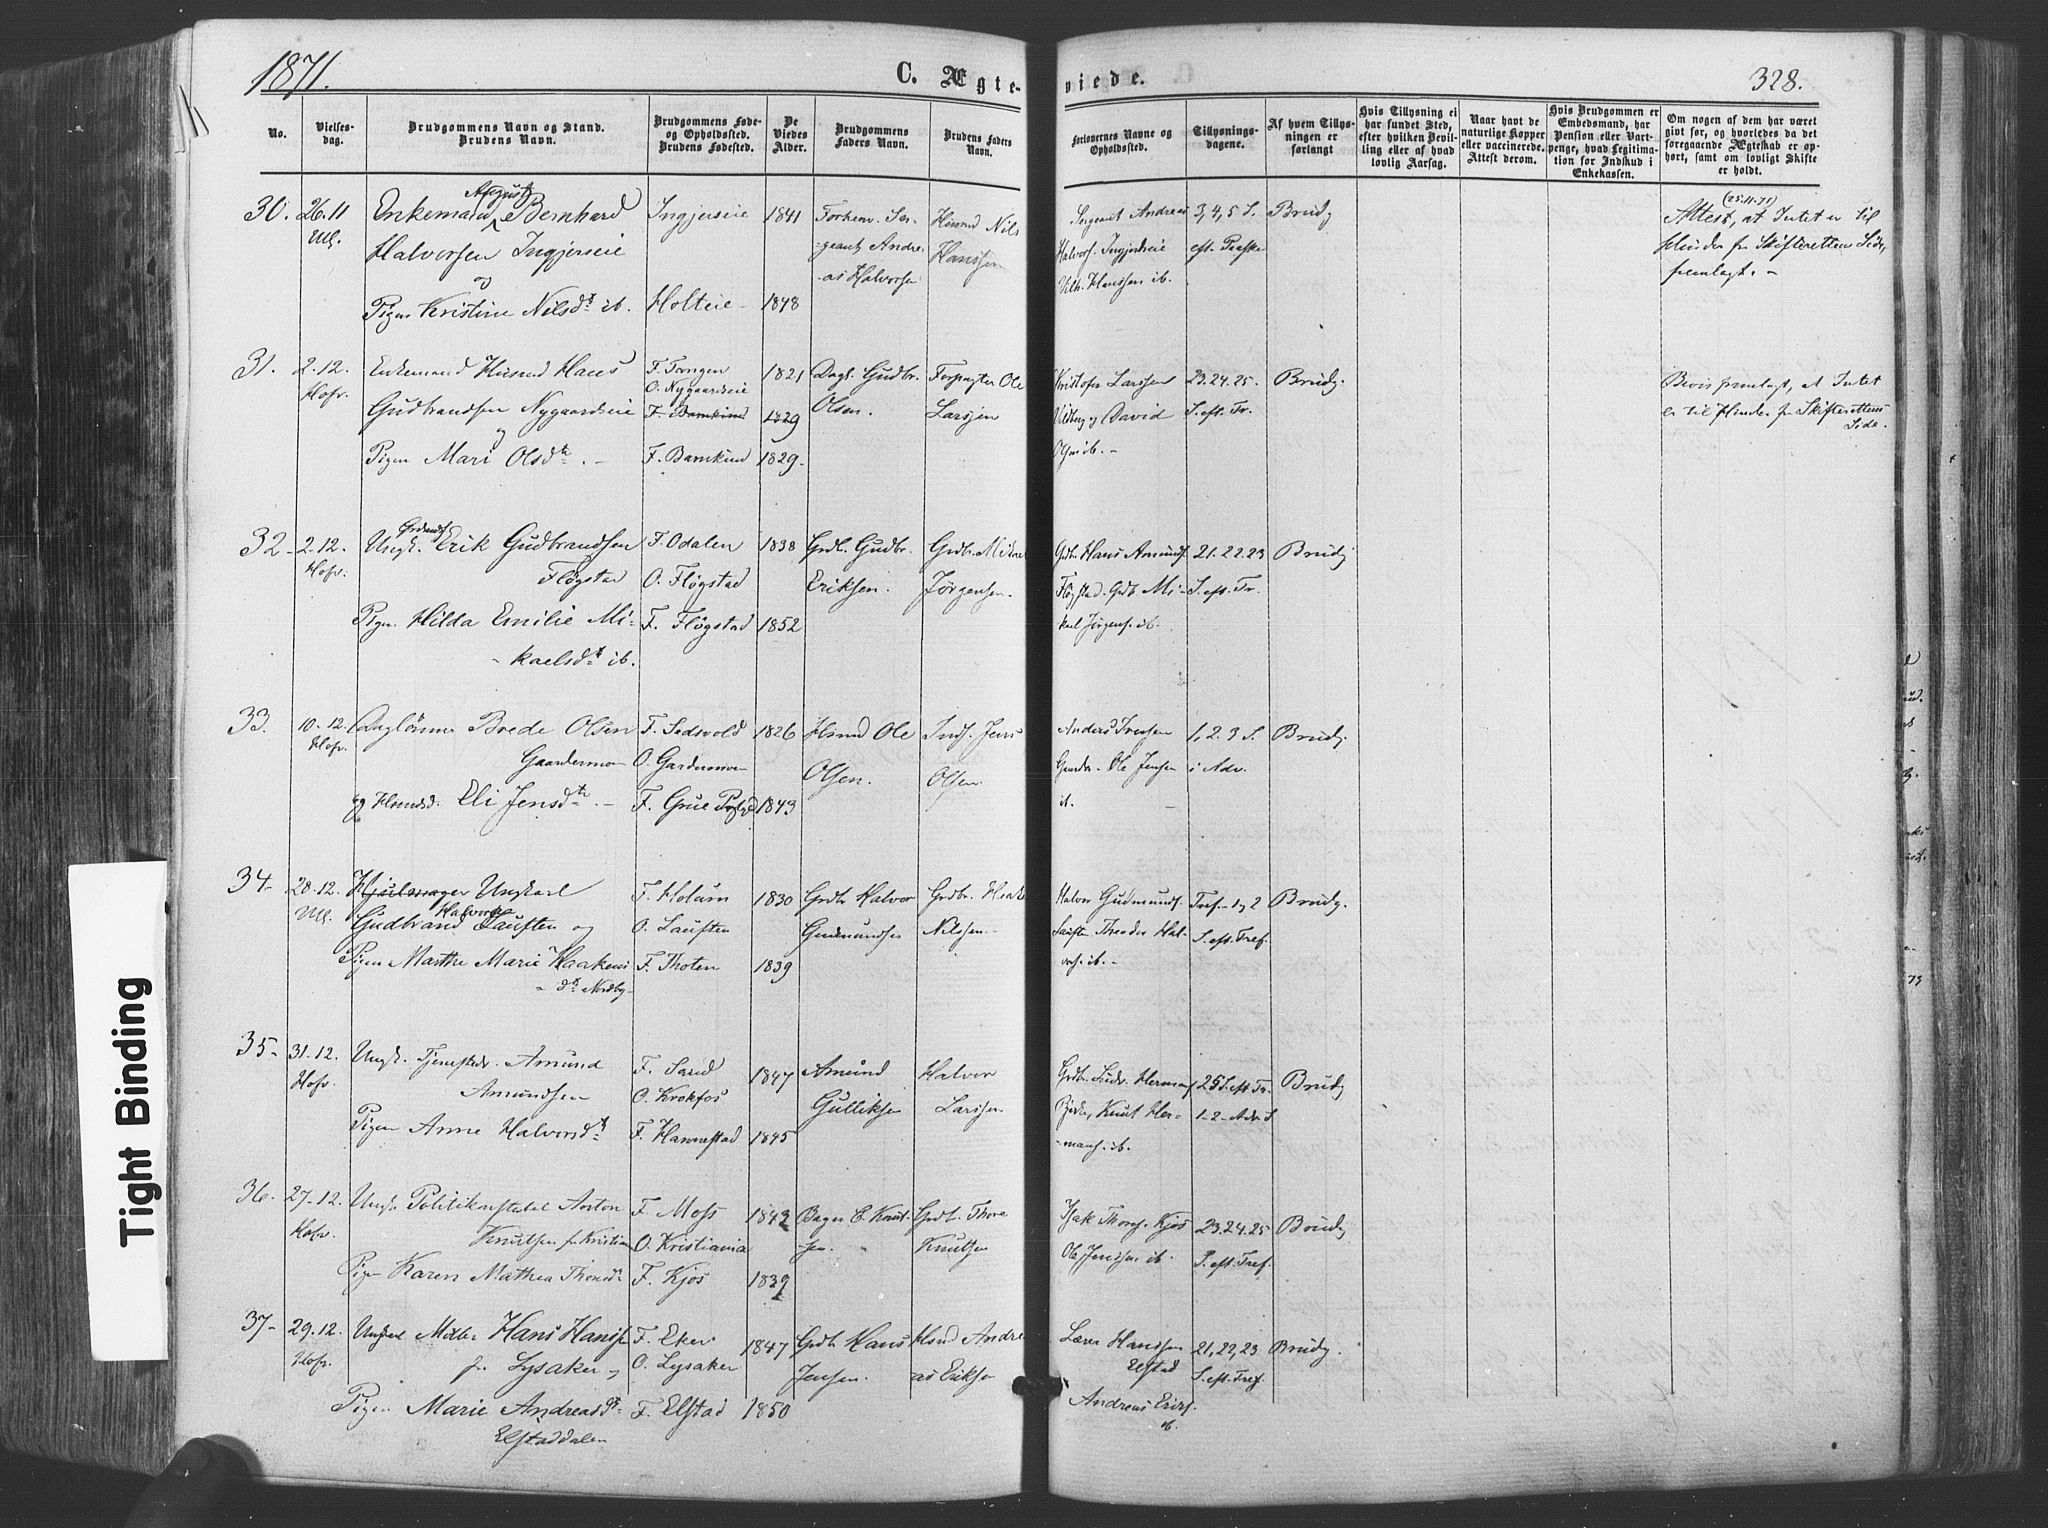 1871.
C. Ægte-
viede.
328.
No.
Vielses-
dag.
Brudgommens Navn og Stand.
Brudens Navn.
Brudgommens Føde-
og Opholdssted.
Brudens Fødested.
De
Viedes
Alder.
Brudgommens
Faders Navn.
Brudens Faders
Navn.
Forlovernes Navne og
Opholdssted.
Tillysnings-
dagene.
Af hvem Tillys-
ningen er
forlangt
Hvis Tillysning ei
har fundet Sted,
efter hvilken Bevil-
ling eller af hvad
lovlig Aarsag.
Naar havt de
naturlige Kopper
eller vaccinerede.
Attest derom.
Hvis Brudgommen er
Embedsmand, har
Pension eller Vart-
penge, hvad Legitima-
tion for Indskud i
Enkekassen.
Om nogen af dem har været
gift før, og hvorledes da det
foregaaende Ægteskab er op-
hørt, samt om lovligt Skifte
er holdt.
30.
26.11
Ul.
August
Enkemand Bernhard
Halvorsen Ingjerseie
og
Pigen Kristine Nilsdt ib.
Ingjerseie
Holteie
1841
1848
Forhenv. Ser-
geant Andre-
as Halvorsen
Husmd Nils
Hanssen
Sergeant Andreas
Halvors. Ingjerseie
Vilh. Hanssen ib.
3, 4, 5 S.
eft. Paaske
Brudg
(25.11.71)
Attest, at Intet er til
Hinder fr Skifterettens Side,
fremlagt.-
31.
2.12.
Hofv.
Enkemand Husmd Hans
Gudbrandsen Nygaardseie
og
Pigen Mari Olsdtr.-
F. Tangen
O. Nygaardseie
F. Bamkind
F. Bamkind
1821
1829
1829-
Dagl. Gudbr.
Olsen.
Forpagter Ole
Larsen
Kristofer Larssen
Vilberg og David
Olsen ib.-
23.24.25.
S. eft. Tr.
Brudg.
Bevis fremlagt, at Intet
er til Hinder fr Skifterettens
Side.
32-
2.12.
Hofv.
Ungk. Erik Gudbrandsen
Fløgstad
Pigen Hilda Emilie Mi-
kaelsdtr ib.
F. Odalen
O. Fløgstad
F. Fløgstad
1838
1852
Grdb. Gudbr.
Eriksen.
Grdbr. Mikael
Jørgensen.
Grdbr Hans Amunds.
Fløgstad. Grdb. Mi-
kael Jørgens. ib.
21.22.23
S. eft. Tr.
Brudg
33.
10-12.
Hofv.
Daglønner Brede Olsen
Gaardermo
og Husmsd. Eli Jensdtr.-
F. Eidsvold
O. Gardermoen
F. Grue Præstgd
1826
1843
Husmd Ole
Olsen.
Inds. Jens
Olsen
Anders Iversen
Garder. Ole Jensen
ib.
1. 2. 3 S.
i Adv.
Brudg.
34-
28-12.
Ul.
Hjulmager Ungkarl
Halvors.
Gudbrand Lauften og
Pigen Marthe Marie Haakens-
dtr Nordby-
F. Holum
O. Lauften
F. Thoten
1830
1839
Grdbr Halvor
Gudmundsen
Grdbr. Haaken
Nilssen-
Halvor Gudmunds.
Lauften Theodor Hal-
vors. ib.-
Tref. 1 og 2
S. eft. Tref.
Brudg.
35-
31-12.
Hofv.
Ungk. Tjenestedr. Amund
Amundsen
Pigen Anne Halvorsdtr
F. Sand
O. Krokfos
F. Hammestad
1847
1845
Amund
Gulliksen
Halvor
Larssen
Grdbr. Herman
Knut Her-
mans. ib.
25 S. eft. Tr.
1-2-Adv. S
Brudg
36.
27-12.
Hofv.
Ungk. Politikonstabel Anton
Knutsen fr Kristian
Pigen Karen Mathea Thoresdtr
F. Moss
O. Kristiania
F. Kjos
1842
1839
Bager C. Knut-
sen.
Grdb. Thore
Knutsen
Isak Thores. Kjos
Ole Jenssen ib.
23.24.25
S. eft. Tref.
Brudg
37-
29.12.
Hofv.
Ungkarl Møller Hans Hanssen
fr Lysaker og
Pigen Marie Andreasdtr
Elstaddalen
F. Eker
O. Lysaker
F. Elstad
1847
1850
Grdbr Hans
Jensen.
Husmd Andre
as Eriksen
Lærer Hanssen
Elstad
Andreas Eriks.
ib.
21, 22, 23
S. eft. Tref.
Brudg.
Tight Binding